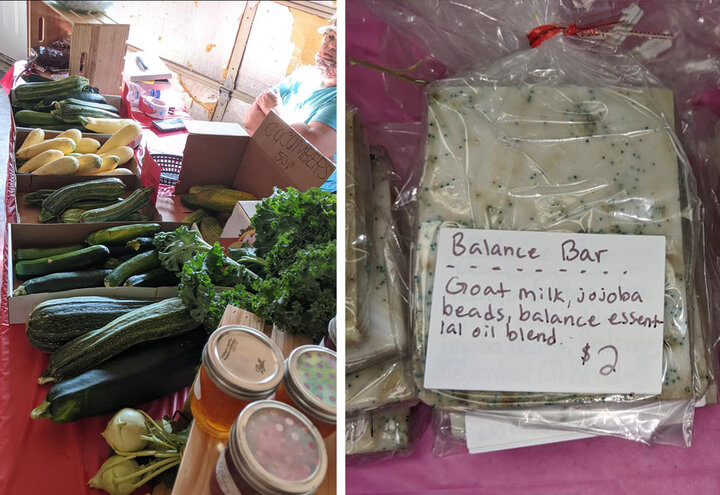 CUCUMBERS
50¢
Ball
Balance Bar
Goat milk, jojoba
beads, balance essent
ial oil blend.
$2